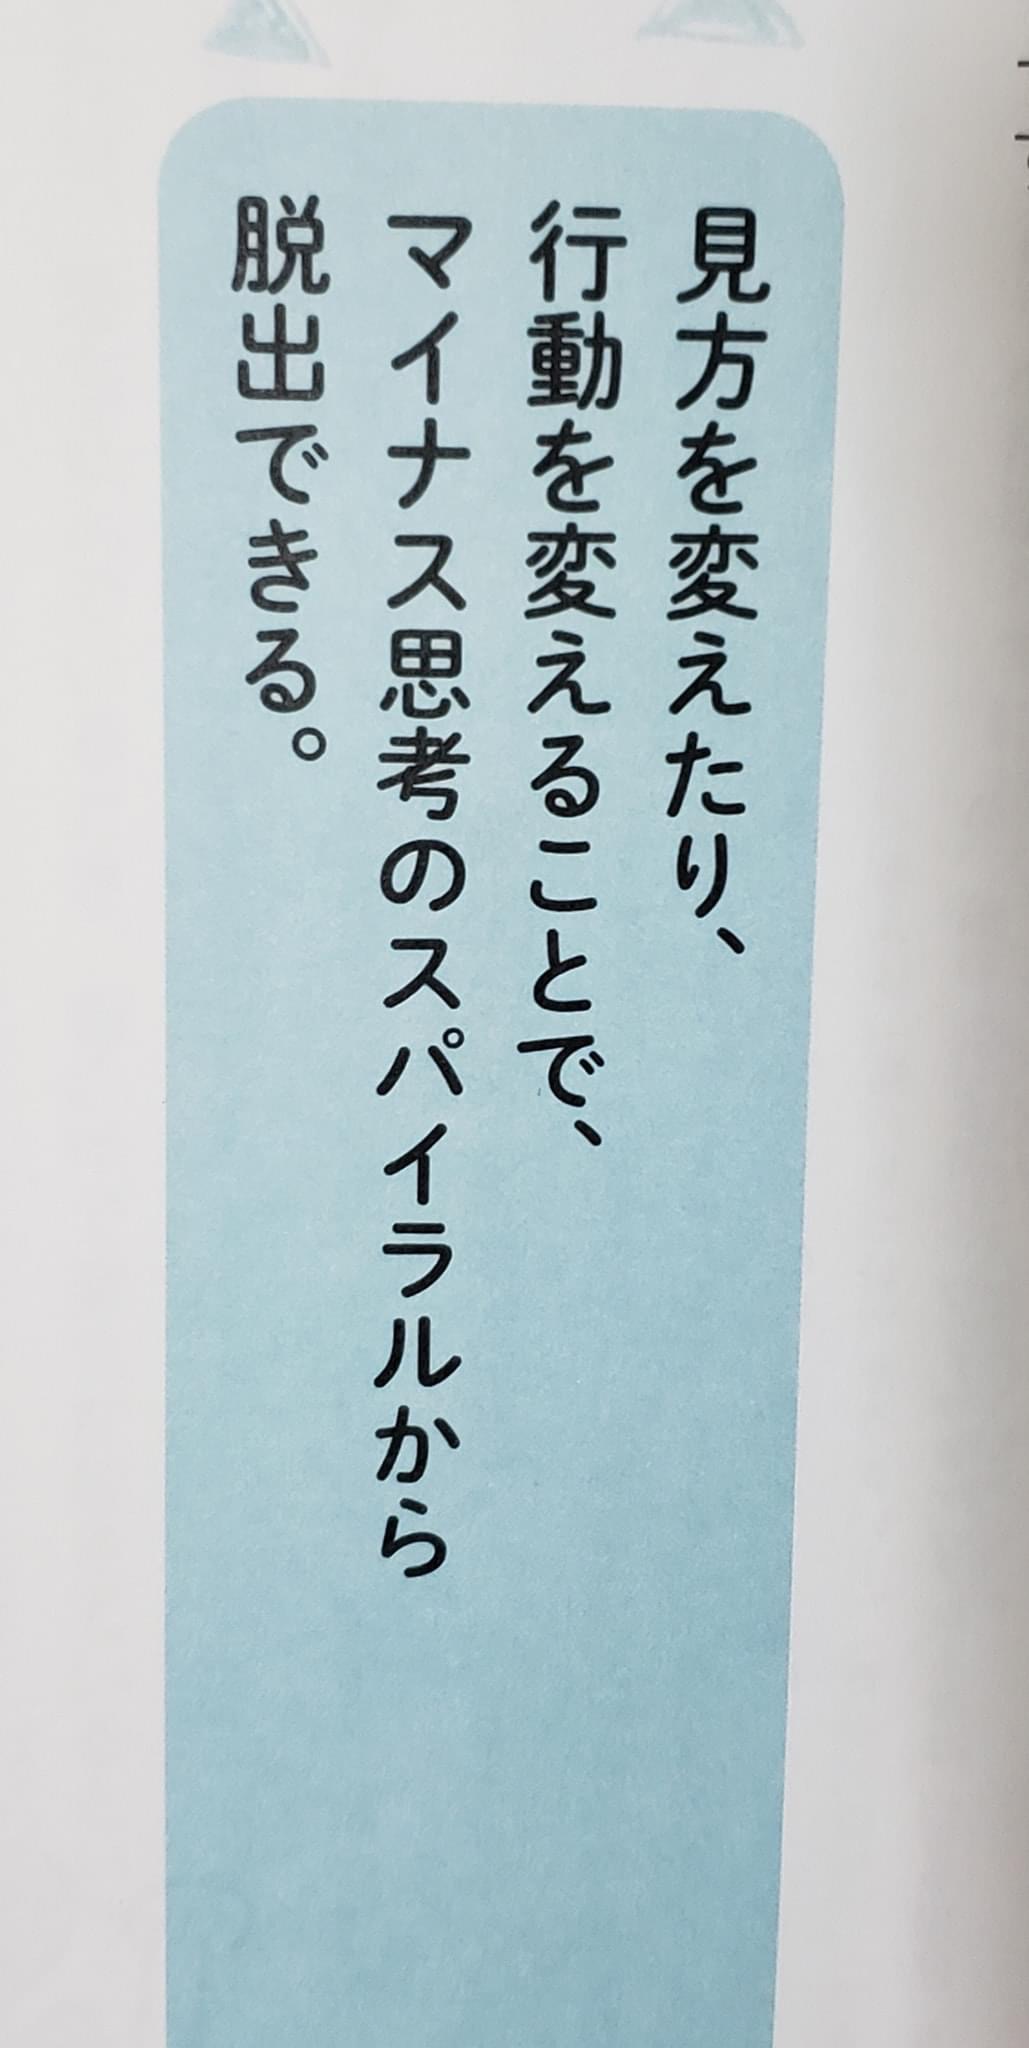 見方を変えたり、
行動を変えることで、
マイナス思考のスパイラルから
脱出できる。